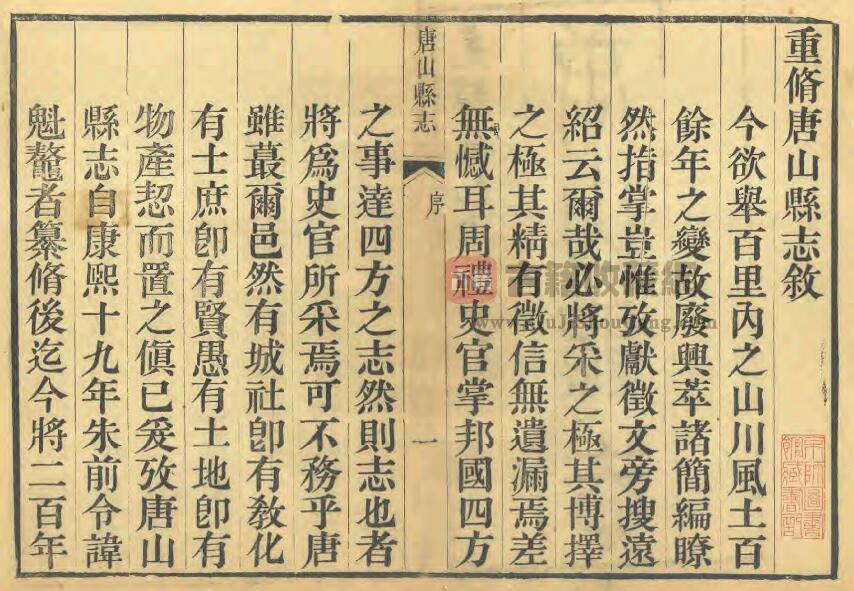 重脩唐山縣志敘
今欲舉百里內之山川風土百
餘年之變故廢興萃諸簡編瞭
然指掌豈惟攷獻徵文旁搜遠
紹云爾哉必將采之極其博擇
之極其精有徵信無遺漏焉差
無憾耳周禮史官掌邦國四方
唐山縣志
序
一
之事達四方之志然則志也者
將爲史官所采焉可不務乎唐
雖蕞爾邑然有城社卽有教化
有士庶卽有賢愚有土地卽有
物產恝而置之傎已爰攷唐山
縣志自康熙十九年朱前令諱
魁鼇者纂脩後迄今將二百年